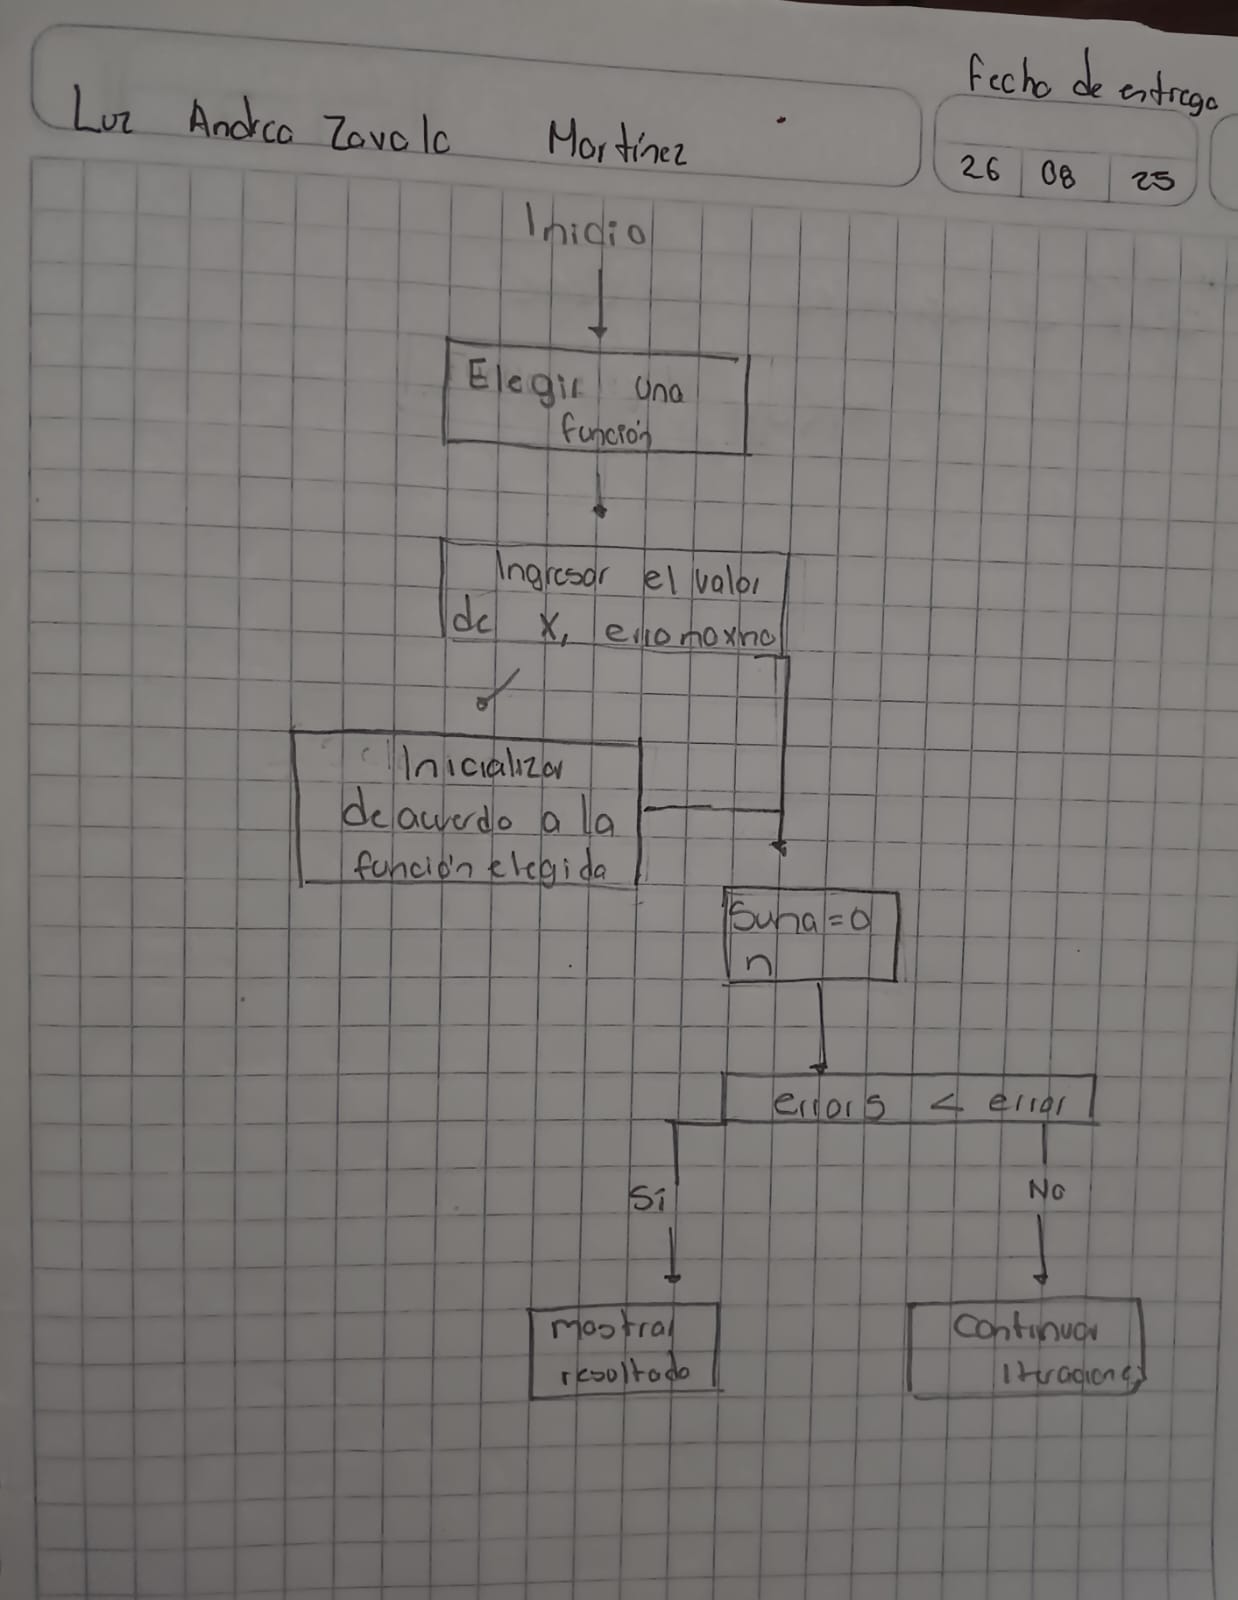 Fecha de entrega
Luz Andrea Zavala Martínez
26 08 25
Inicio
Elegir una
función
Ingresar el valor
de x, erro maxmo
Inicializar
de acuerdo a la
función elegida
Suma = 0
n
errors < error
Sí
No
mostrar
resoltado
Continuar
Iteraciones